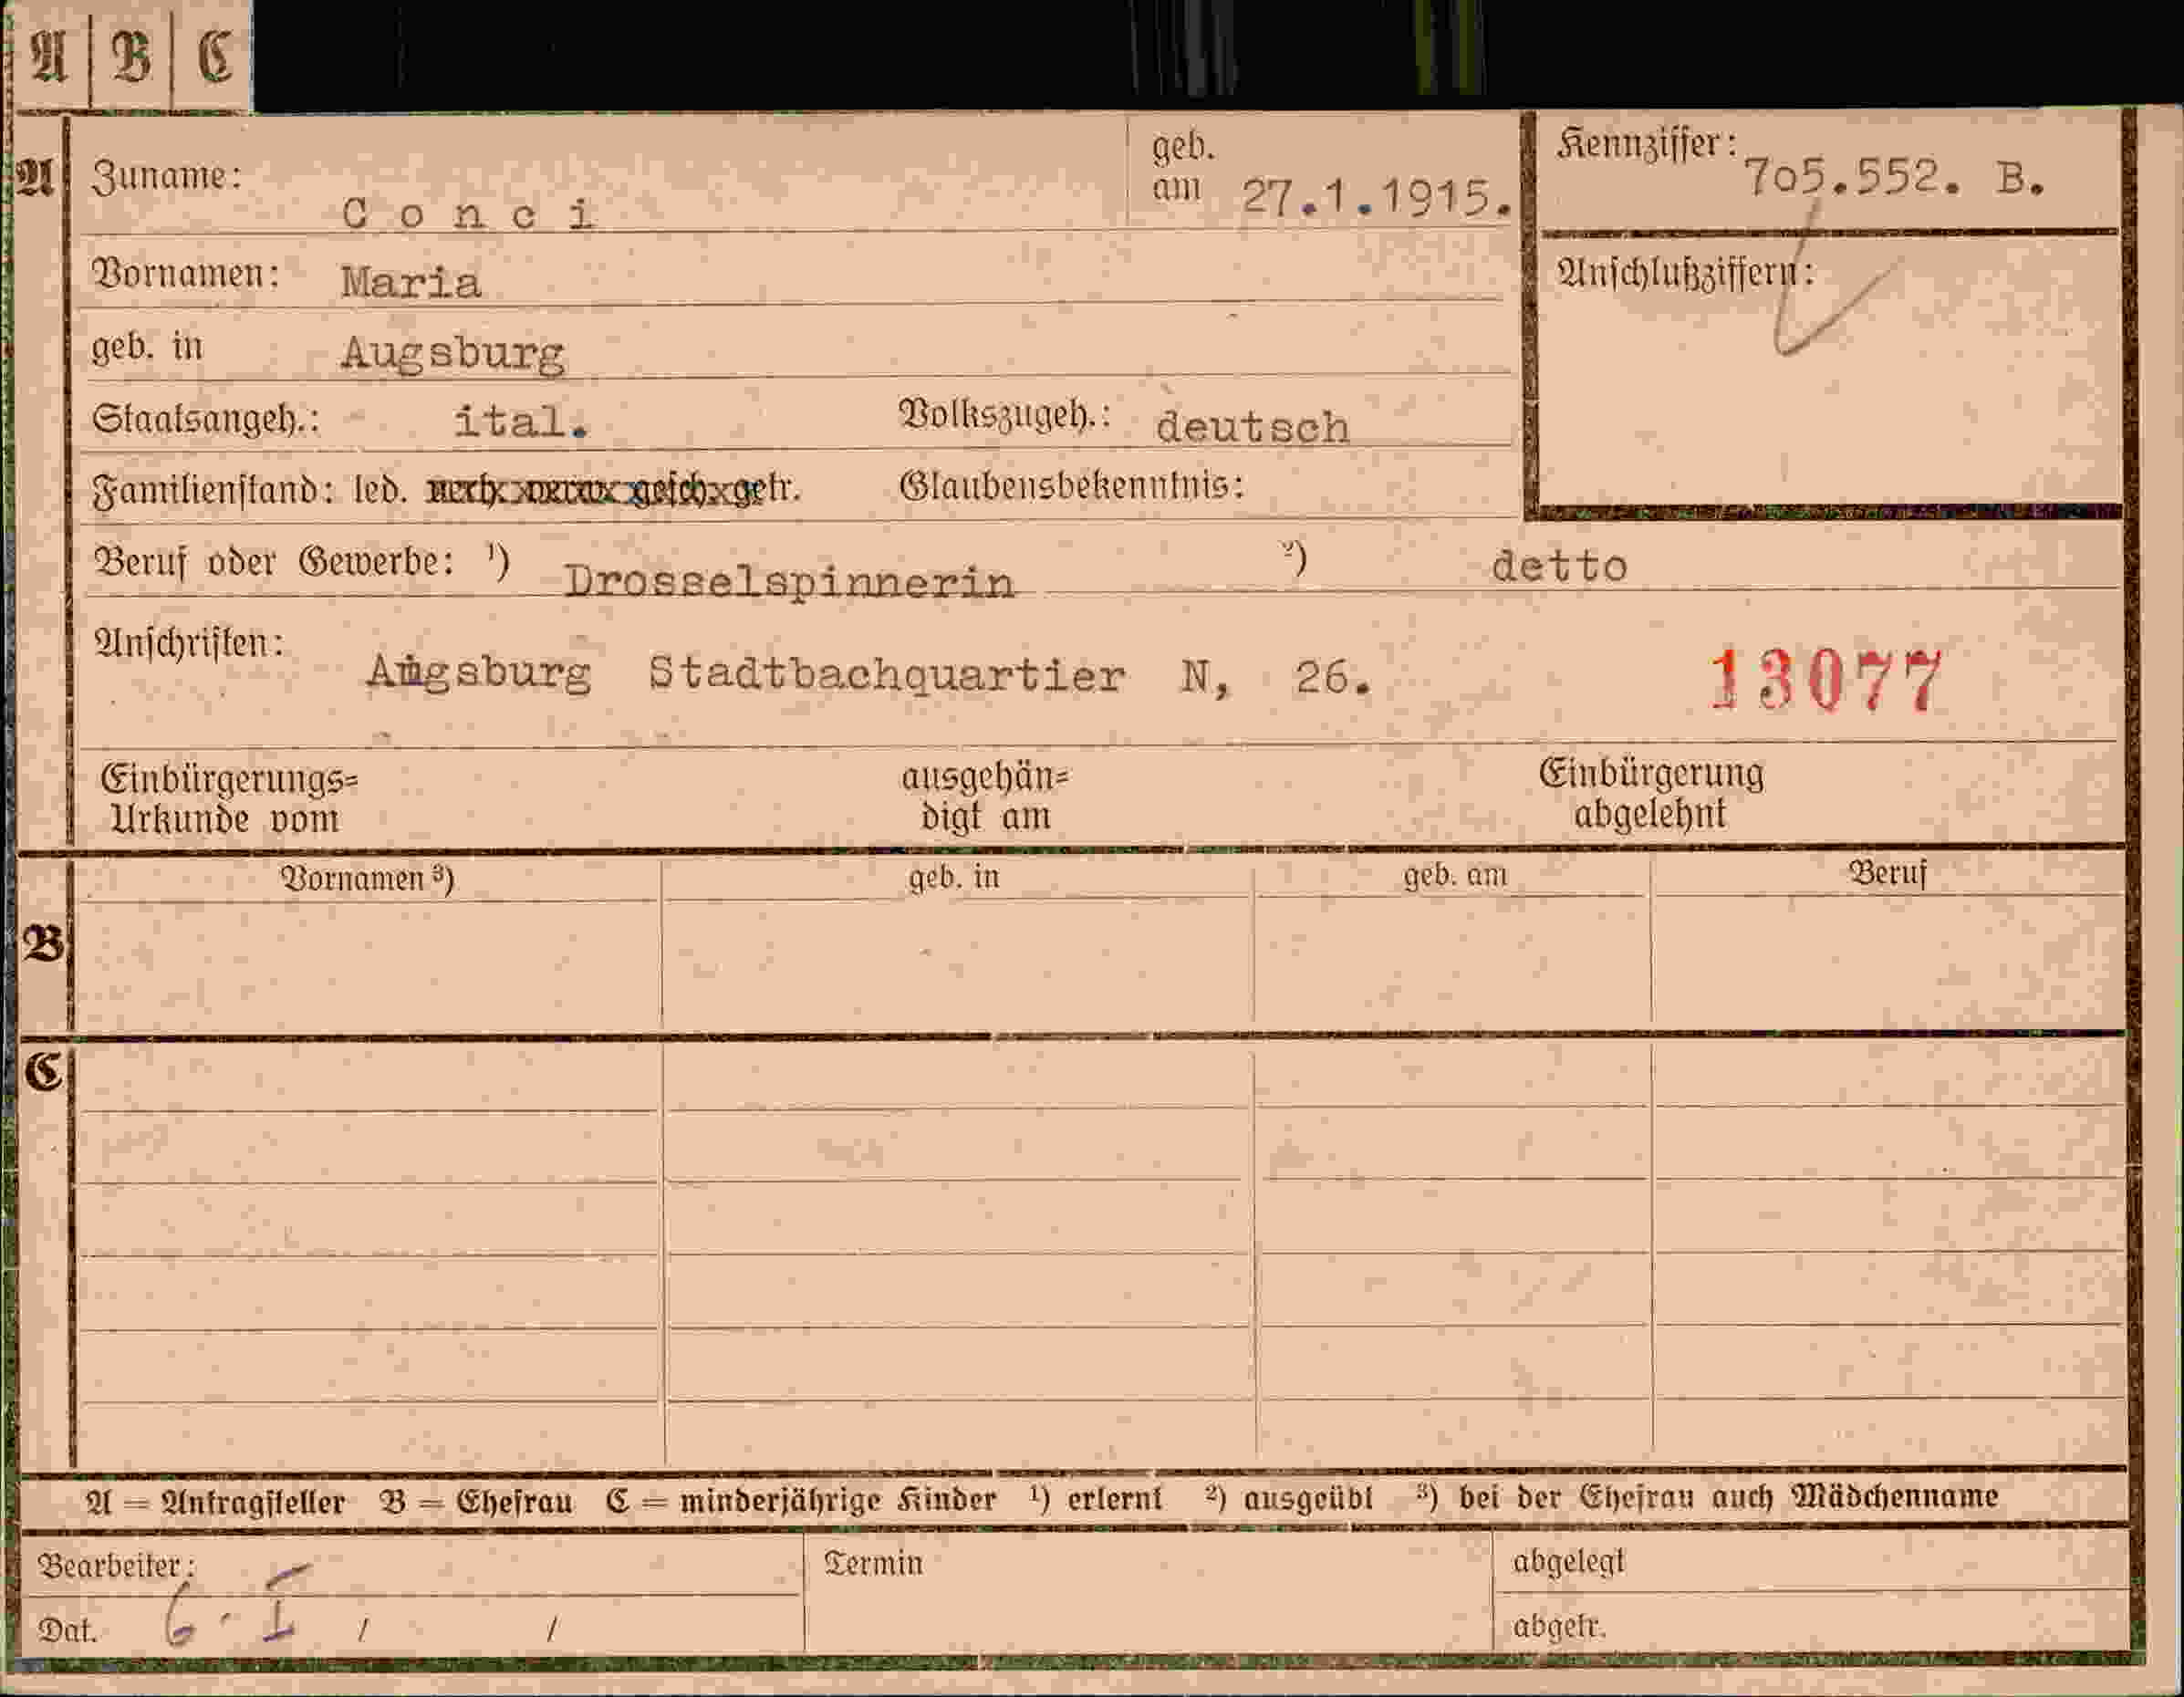 A | B | C
A Zuname: Conci geb. am 27.1.1915. Kennziffer: 705.552. B.
Vornamen: Maria Anschlußziffern:
geb. in Augsburg
Staatsangeh.: ital. Volkszugeh.: deutsch
Familienstand: led. verh. verw. gesch. getr. Glaubensbekenntnis:
Beruf oder Gewerbe: ¹) Drosselspinnerin ²) detto
Anschriften: Augsburg Stadtbachquartier N, 26. 13077
Einbürgerungs= ausgehän= Einbürgerung
Urkunde vom digt am abgelehnt
Vornamen ³) geb. in geb. am Beruf
B
C
A = Antragsteller B = Ehefrau C = minderjährige Kinder ¹) erlernt ²) ausgeübt ³) bei der Ehefrau auch Mädchenname
Bearbeiter: Termin abgelegt
Dat. 6. I / / abgetr.